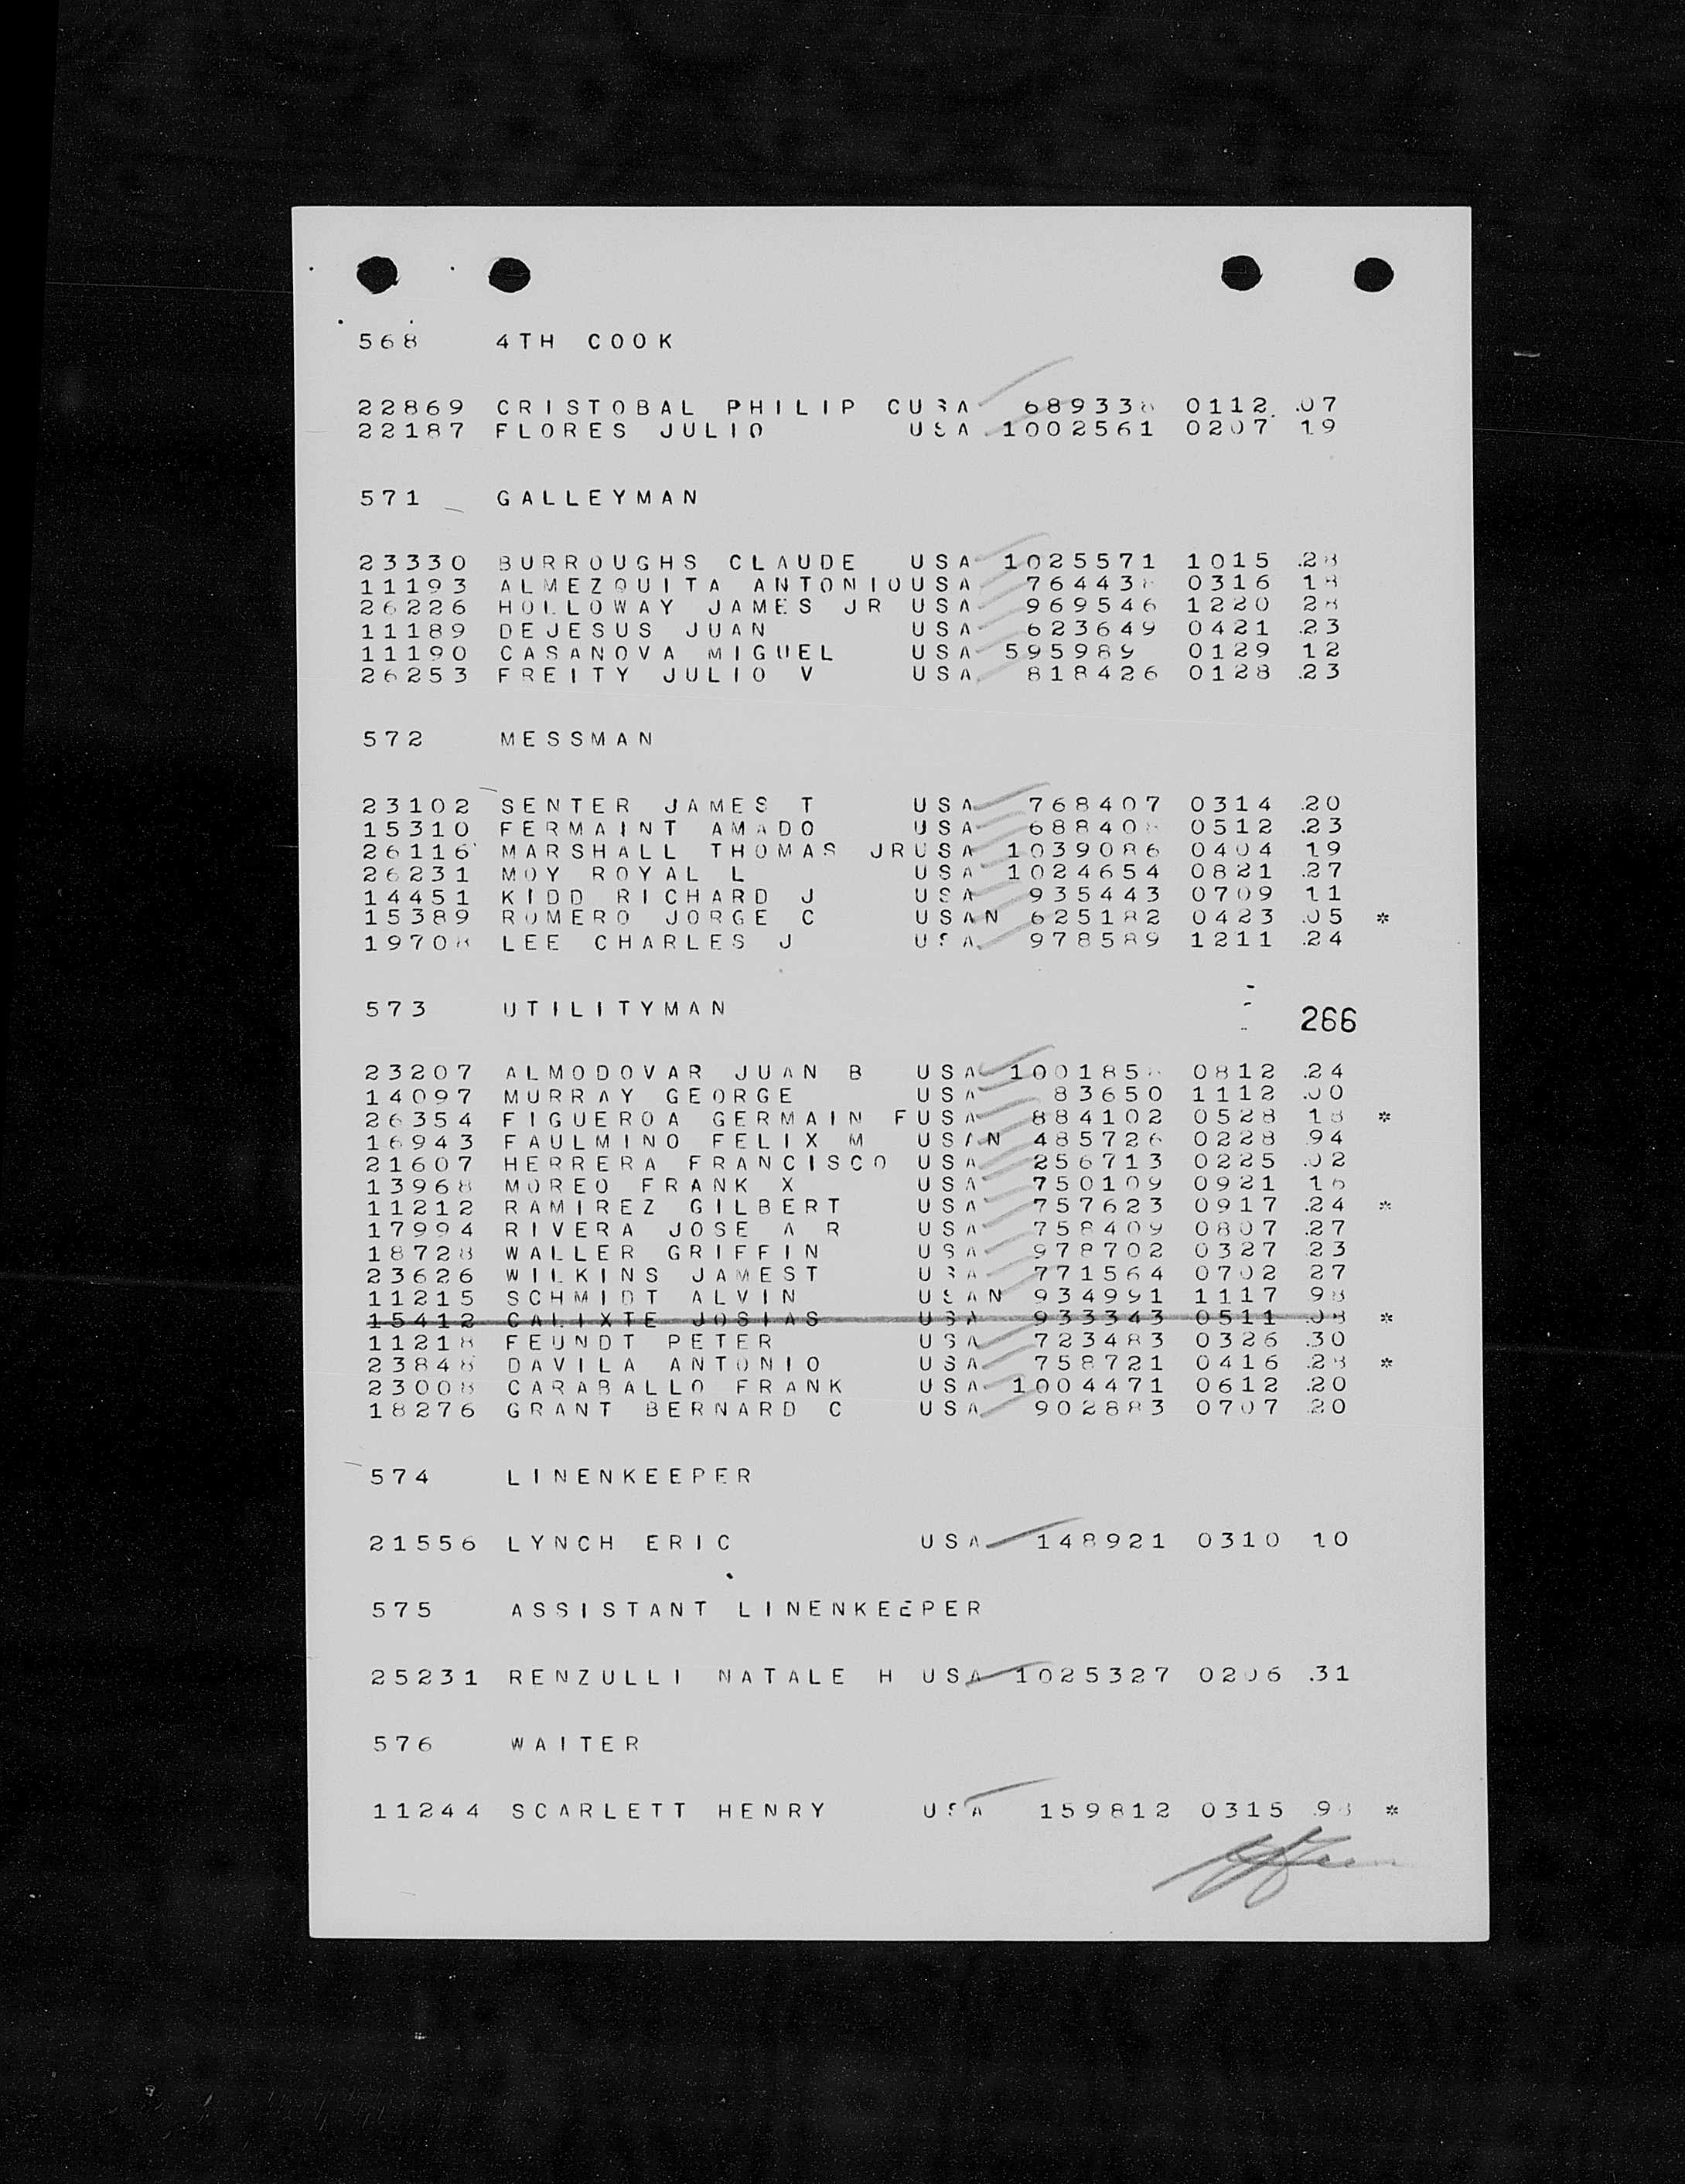 568 4TH COOK
22869 CRISTOBAL PHILIP C USA 689338 0112 07
22187 FLORES JULIO USA 1002561 0207 19
571 GALLEYMAN
23330 BURROUGHS CLAUDE USA 1025571 1015 28
11193 ALMEZQUITA ANTONIO USA 764438 0316 18
26226 HOLLOWAY JAMES JR USA 969546 1220 28
11189 DEJESUS JUAN USA 623649 0421 23
11190 CASANOVA MIGUEL USA 595989 0129 12
26253 FREITY JULIO V USA 818426 0128 23
572 MESSMAN
23102 SENTER JAMES T USA 768407 0314 20
15310 FERMAINT AMADO USA 688408 0512 23
26116 MARSHALL THOMAS JR USA 1039086 0404 19
26231 MOY ROYAL L USA 1024654 0821 27
14451 KIDD RICHARD J USA 935443 0709 11
15389 ROMERO JORGE C USAN 625182 0423 05 *
19708 LEE CHARLES J USA 978589 1211 24
573 UTILITYMAN
266
23207 ALMODOVAR JUAN B USA 1001858 0812 24
14097 MURRAY GEORGE USA 83650 1112 00
26354 FIGUEROA GERMAIN F USA 884102 0528 18 *
16943 FAULMINO FELIX M USAN 485726 0228 94
21607 HERRERA FRANCISCO USA 256713 0225 02
13968 MOREO FRANK X USA 750109 0921 16
11212 RAMIREZ GILBERT USA 757623 0917 24 *
17994 RIVERA JOSE A R USA 758409 0807 27
18728 WALLER GRIFFIN USA 978702 0327 23
23626 WILKINS JAMEST USA 771564 0702 27
11215 SCHMIDT ALVIN USAN 934991 1117 98
15412 CALIXTE JOSIAS USA 933343 0511 08 *
11218 FEUNDT PETER USA 723483 0326 30
23848 DAVILA ANTONIO USA 758721 0416 28 *
23008 CARABALLO FRANK USA 1004471 0612 20
18276 GRANT BERNARD C USA 902883 0707 20
574 LINENKEEPER
21556 LYNCH ERIC USA 148921 0310 10
575 ASSISTANT LINENKEEPER
25231 RENZULLI NATALE H USA 1025327 0206 31
576 WAITER
11244 SCARLETT HENRY USA 159812 0315 98 *